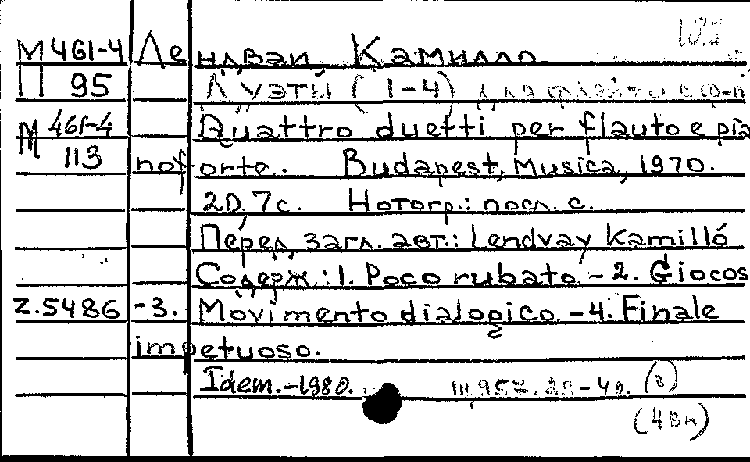 М 461-4 Лендваи, Камилло
П 95 Дуэты (1-4) для флейты с ф-п
М 461-4 Quattro duetti per flauto e pia
113 noforte. Budapest, Musica, 1970.
20, 7с. Нотогр.: посл. с.
Перед загл. авт.: Lendvay Kamilló
Содерж.: 1. Poco rubato - 2. Giocos
Z.5486 -3. Movimento dialogico - 4. Finale
impetuoso.
Idem. -1980.
(4вн)